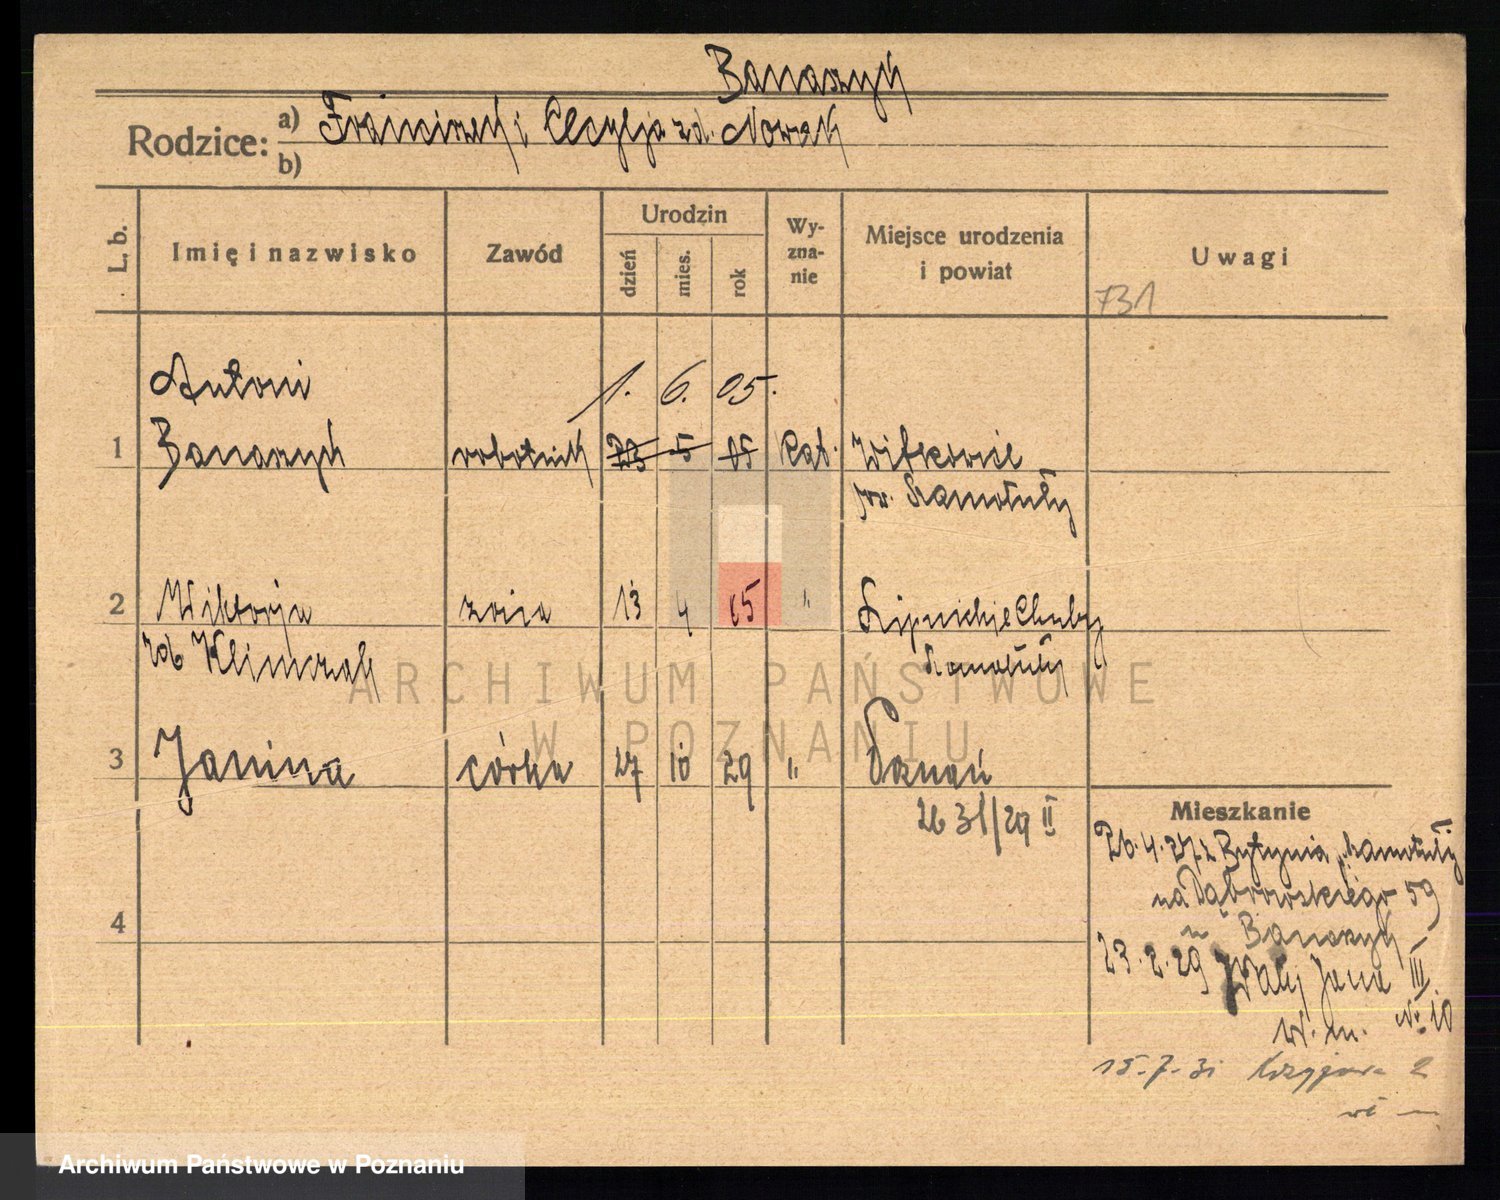 Banaszyk
Rodzice: a) Franciszek i Cecylja zd. Nowak
b)
L. b. Imię i nazwisko Zawód Urodzin dzień mies. rok Wy-zna-nie Miejsce urodzenia i powiat Uwagi
731
Antoni 1. 6. 05.
1 Banaszyk robotnik 23 5 05 kat. Witkowice
pow. Szamotuły
2 Wiktorja żona 13 4 05 " Lipnickie Chuby
zd Klimczak Szamotuły
3 Janina córka 27 10 29 " Poznań
2631/29 II
4
Mieszkanie
26.4.27 z Bytynia, Szamotuły
na Dąbrowskiego 59
u Banaszyk
23.2.29 Wały Jana III
№ 10
w. m.
15.7.31
ARCHIWUM PAŃSTWOWE
W POZNANIU
Archiwum Państwowe w Poznaniu